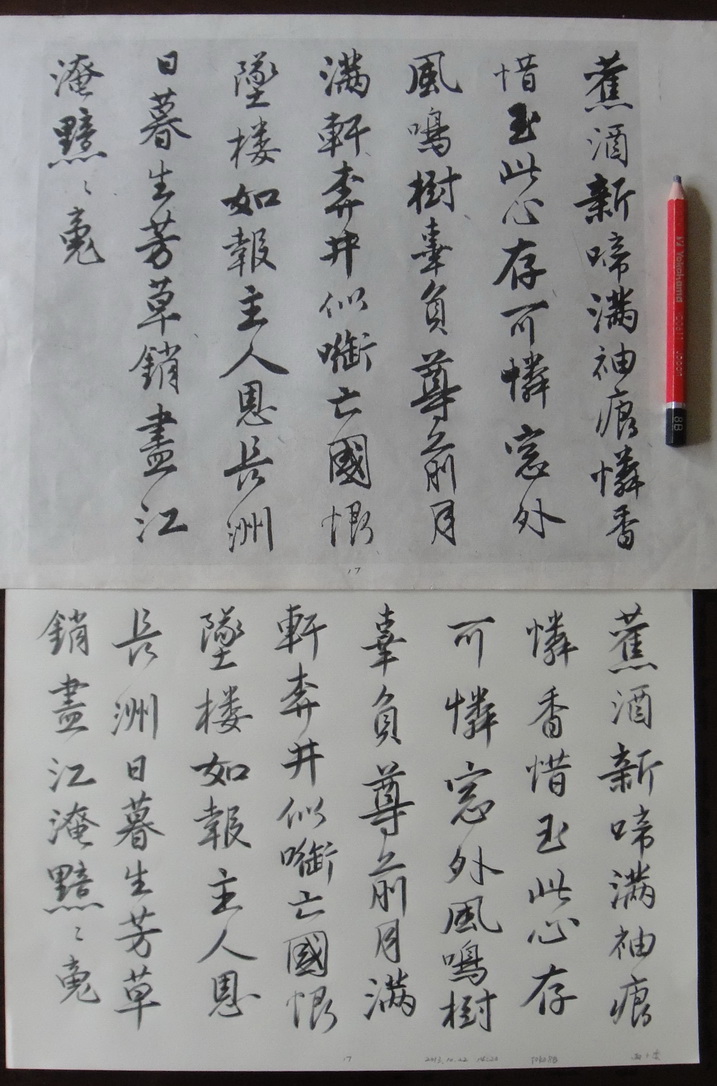 舊酒新啼满袖痕憐香
惜玉此心存可憐窓外
風鳴樹辜負尊前月
满軒奔井似啣亡國恨
墜楼如報主人恩長洲
日暮生芳草銷盡江
淹黯々䰟
17
Yokohama
8B
舊酒新啼满袖痕
憐香惜玉此心存
可憐窓外風鳴樹
辜負尊前月满
軒奔井似啣亡國恨
墜楼如報主人恩
長洲日暮生芳草
銷盡江淹黯々䰟
17